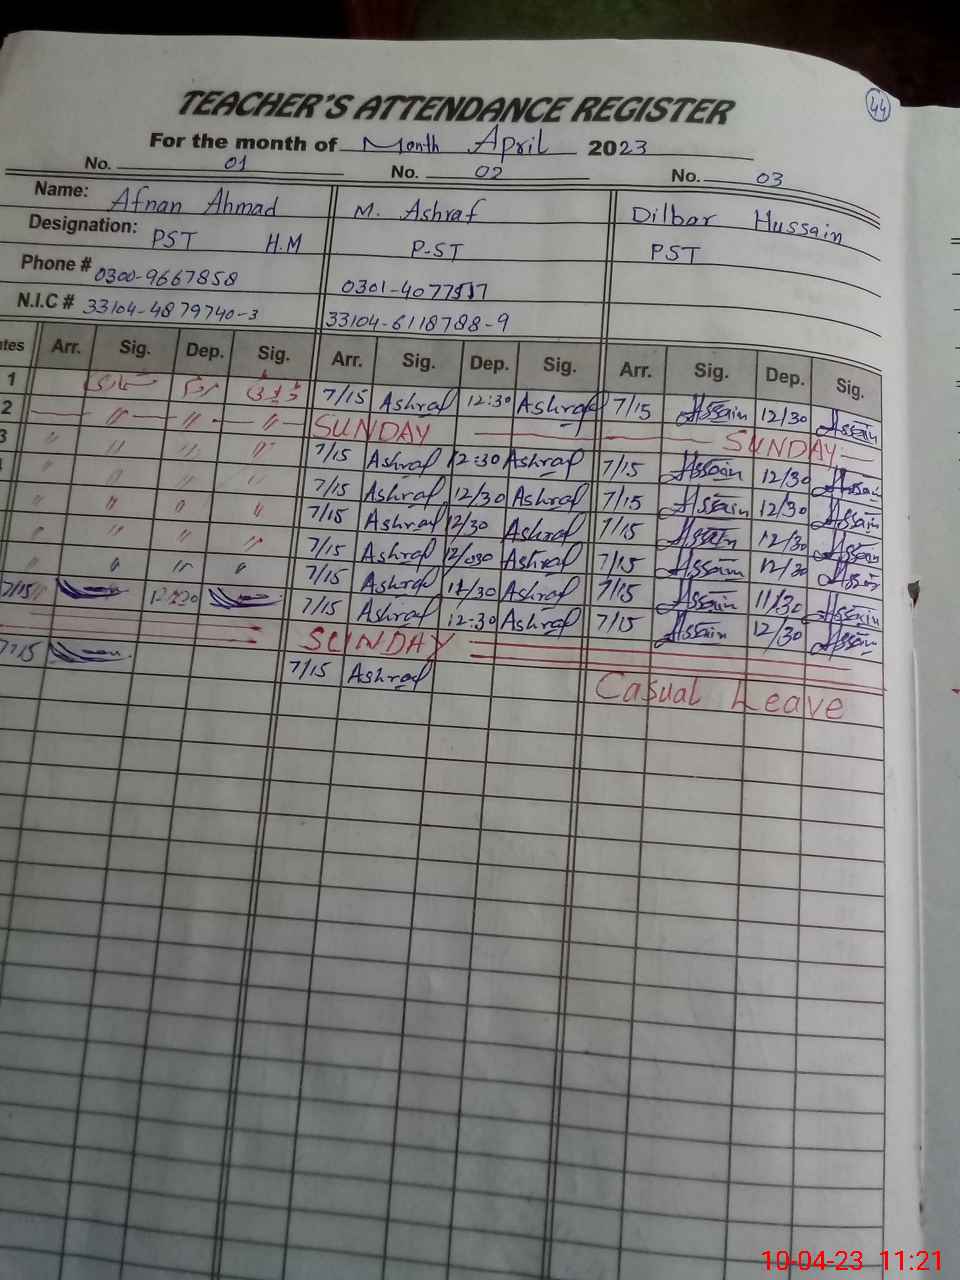 44
TEACHER'S ATTENDANCE REGISTER
For the month of Month April 2023
No. 01 No. 02 No. 03
Name: Afnan Ahmad M. Ashraf Dilbar Hussain
Designation: PST H.M P-ST PST
Phone # 0300-9667858 0301-4077517
N.I.C # 33104-4879740-3 33104-6118788-9
Arr. Sig. Dep. Sig. Arr. Sig. Dep. Sig. Arr. Sig. Dep. Sig.
1 7/15 Ashraf 12:30 Ashraf 7/15 Assain 12/30 Assain
2 — 〃 — 〃 — 〃 SUNDAY SUNDAY
3 〃 〃 〃 〃 7/15 Ashraf 12:30 Ashraf 7/15 Assain 12/30 Assain
〃 〃 〃 〃 7/15 Ashraf 12/30 Ashraf 7/15 Assain 12/30 Assain
〃 〃 〃 〃 7/15 Ashraf 12/30 Ashraf 7/15 Assain 12/30 Assain
〃 〃 〃 〃 7/15 Ashraf Ashraf 7/15 Assain 12/30 Assain
〃 〃 〃 〃 7/15 Ashraf 12/30 Ashraf 7/15 Assain 11/30 Assain
7/15 7/15 Ashraf 12:30 Ashraf 7/15 Assain 12/30 Assain
SUNDAY
7/15 7/15 Ashraf Casual Leave
10-04-23 11:21